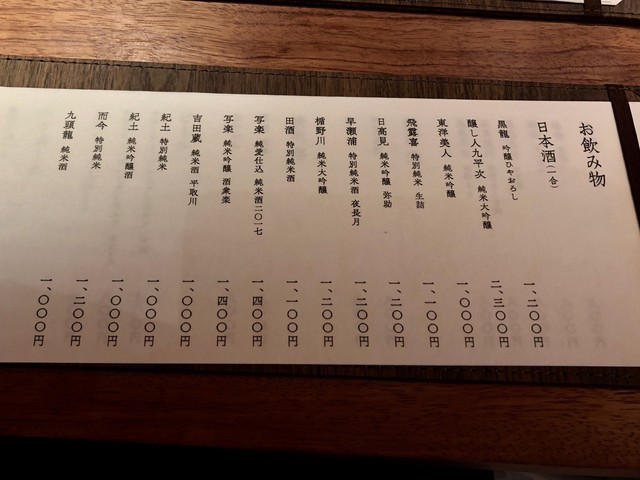 お飲み物
日本酒(一合)
黒龍 吟醸ひやおろし 一、二〇〇円
醸し人九平次 純米大吟醸 二、三〇〇円
東洋美人 純米吟醸 一、〇〇〇円
飛露喜 特別純米 生詰 一、一〇〇円
日高見 純米吟醸 弥助 一、二〇〇円
早瀬浦 特別純米酒 夜長月 一、二〇〇円
楯野川 純米大吟醸 一、二〇〇円
田酒 特別純米酒 一、一〇〇円
写楽 純愛仕込 純米酒二〇一七 一、四〇〇円
写楽 純米吟醸 酒衆楽 一、四〇〇円
吉田蔵 純米酒 平取川 一、〇〇〇円
紀土 特別純米 一、〇〇〇円
紀土 純米吟醸酒 一、〇〇〇円
而今 特別純米 一、二〇〇円
九頭龍 純米酒 一、〇〇〇円